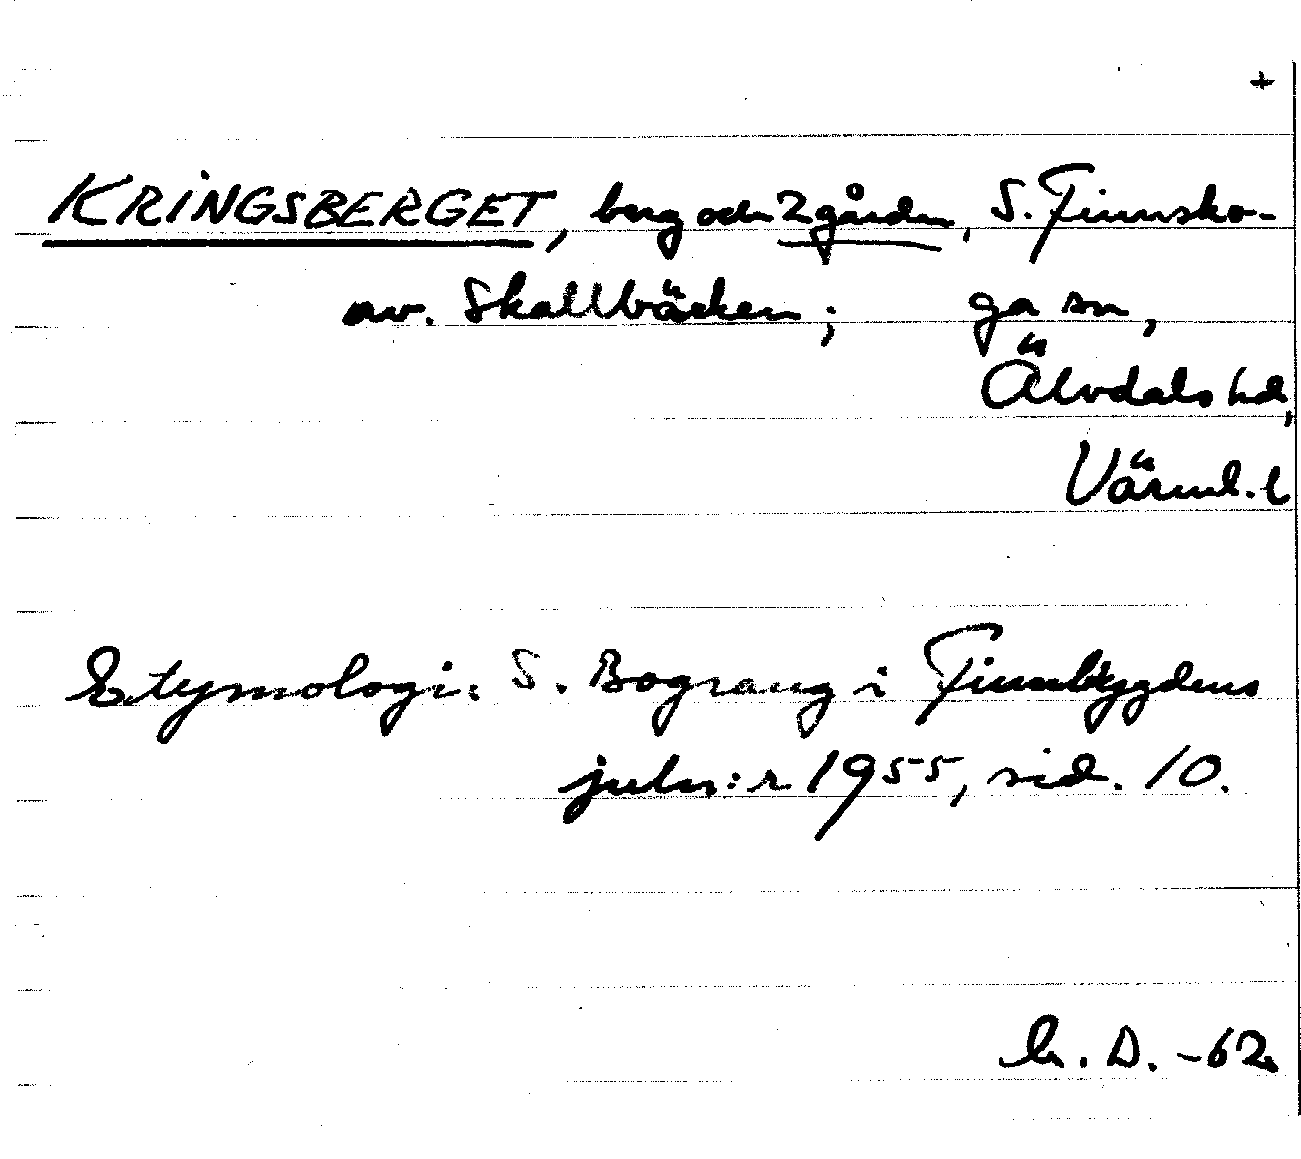 +
KRINGSBERGET, berg och 2 gårdar, S. Finnsko-
nv. Skallbäcken; ga sn,
Älvdals hd,
Värml. l
Etymologi: S. Bograng i Finnbygdens
juln:r 1955, sid. 10.
D. -62